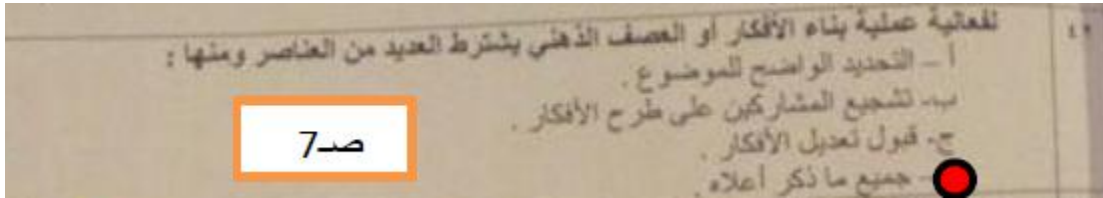 لفعالية عملية بناء الأفكار أو العصف الذهني يشترط العديد من العناصر ومنها :
أ – التحديد الواضح للموضوع .
ب- تشجيع المشاركين على طرح الأفكار .
ج- قبول تعديل الأفكار .
- جميع ما ذكر أعلاه .
صـ7